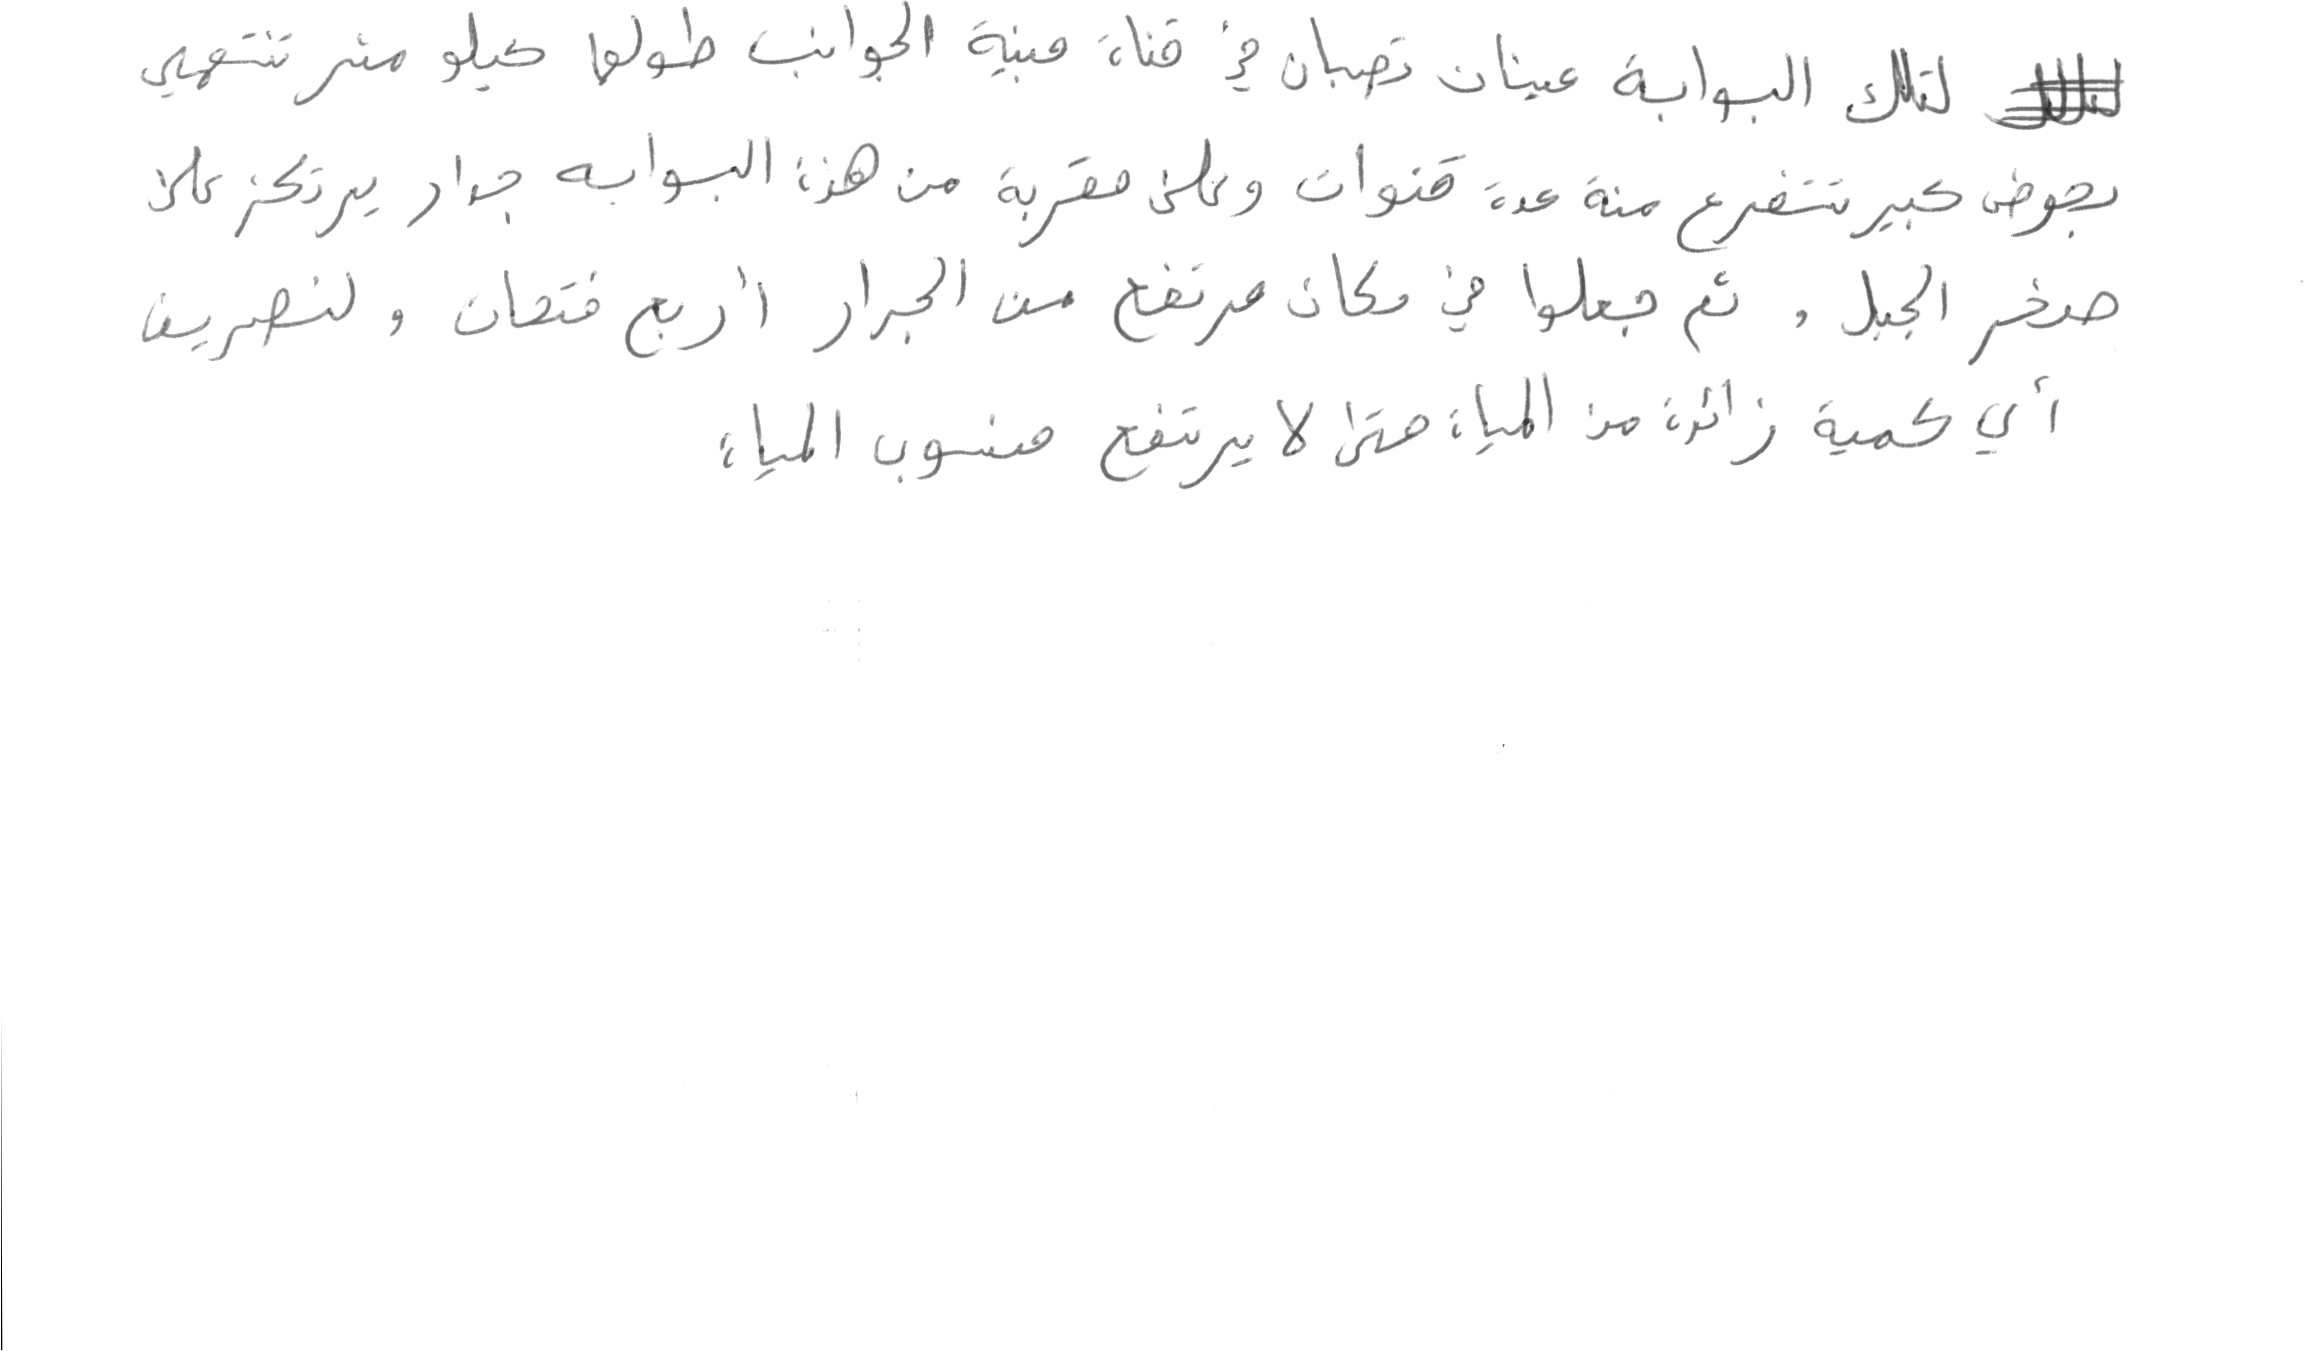 لتلك البوابة عينان تصبان في قناة مبنية الجوانب طولها كيلو متر تنتهي
بحوض كبير تتفرع منة عدة قنوات وعلى مقربة من هذة البوابه جدار يرتكز على
صخر الجبل , ثم جعلوا في مكان مرتفع من الجدار أربع فتحات , لتصريف
أي كمية زائدة من المياة حتى لا يرتفع منسوب المياة